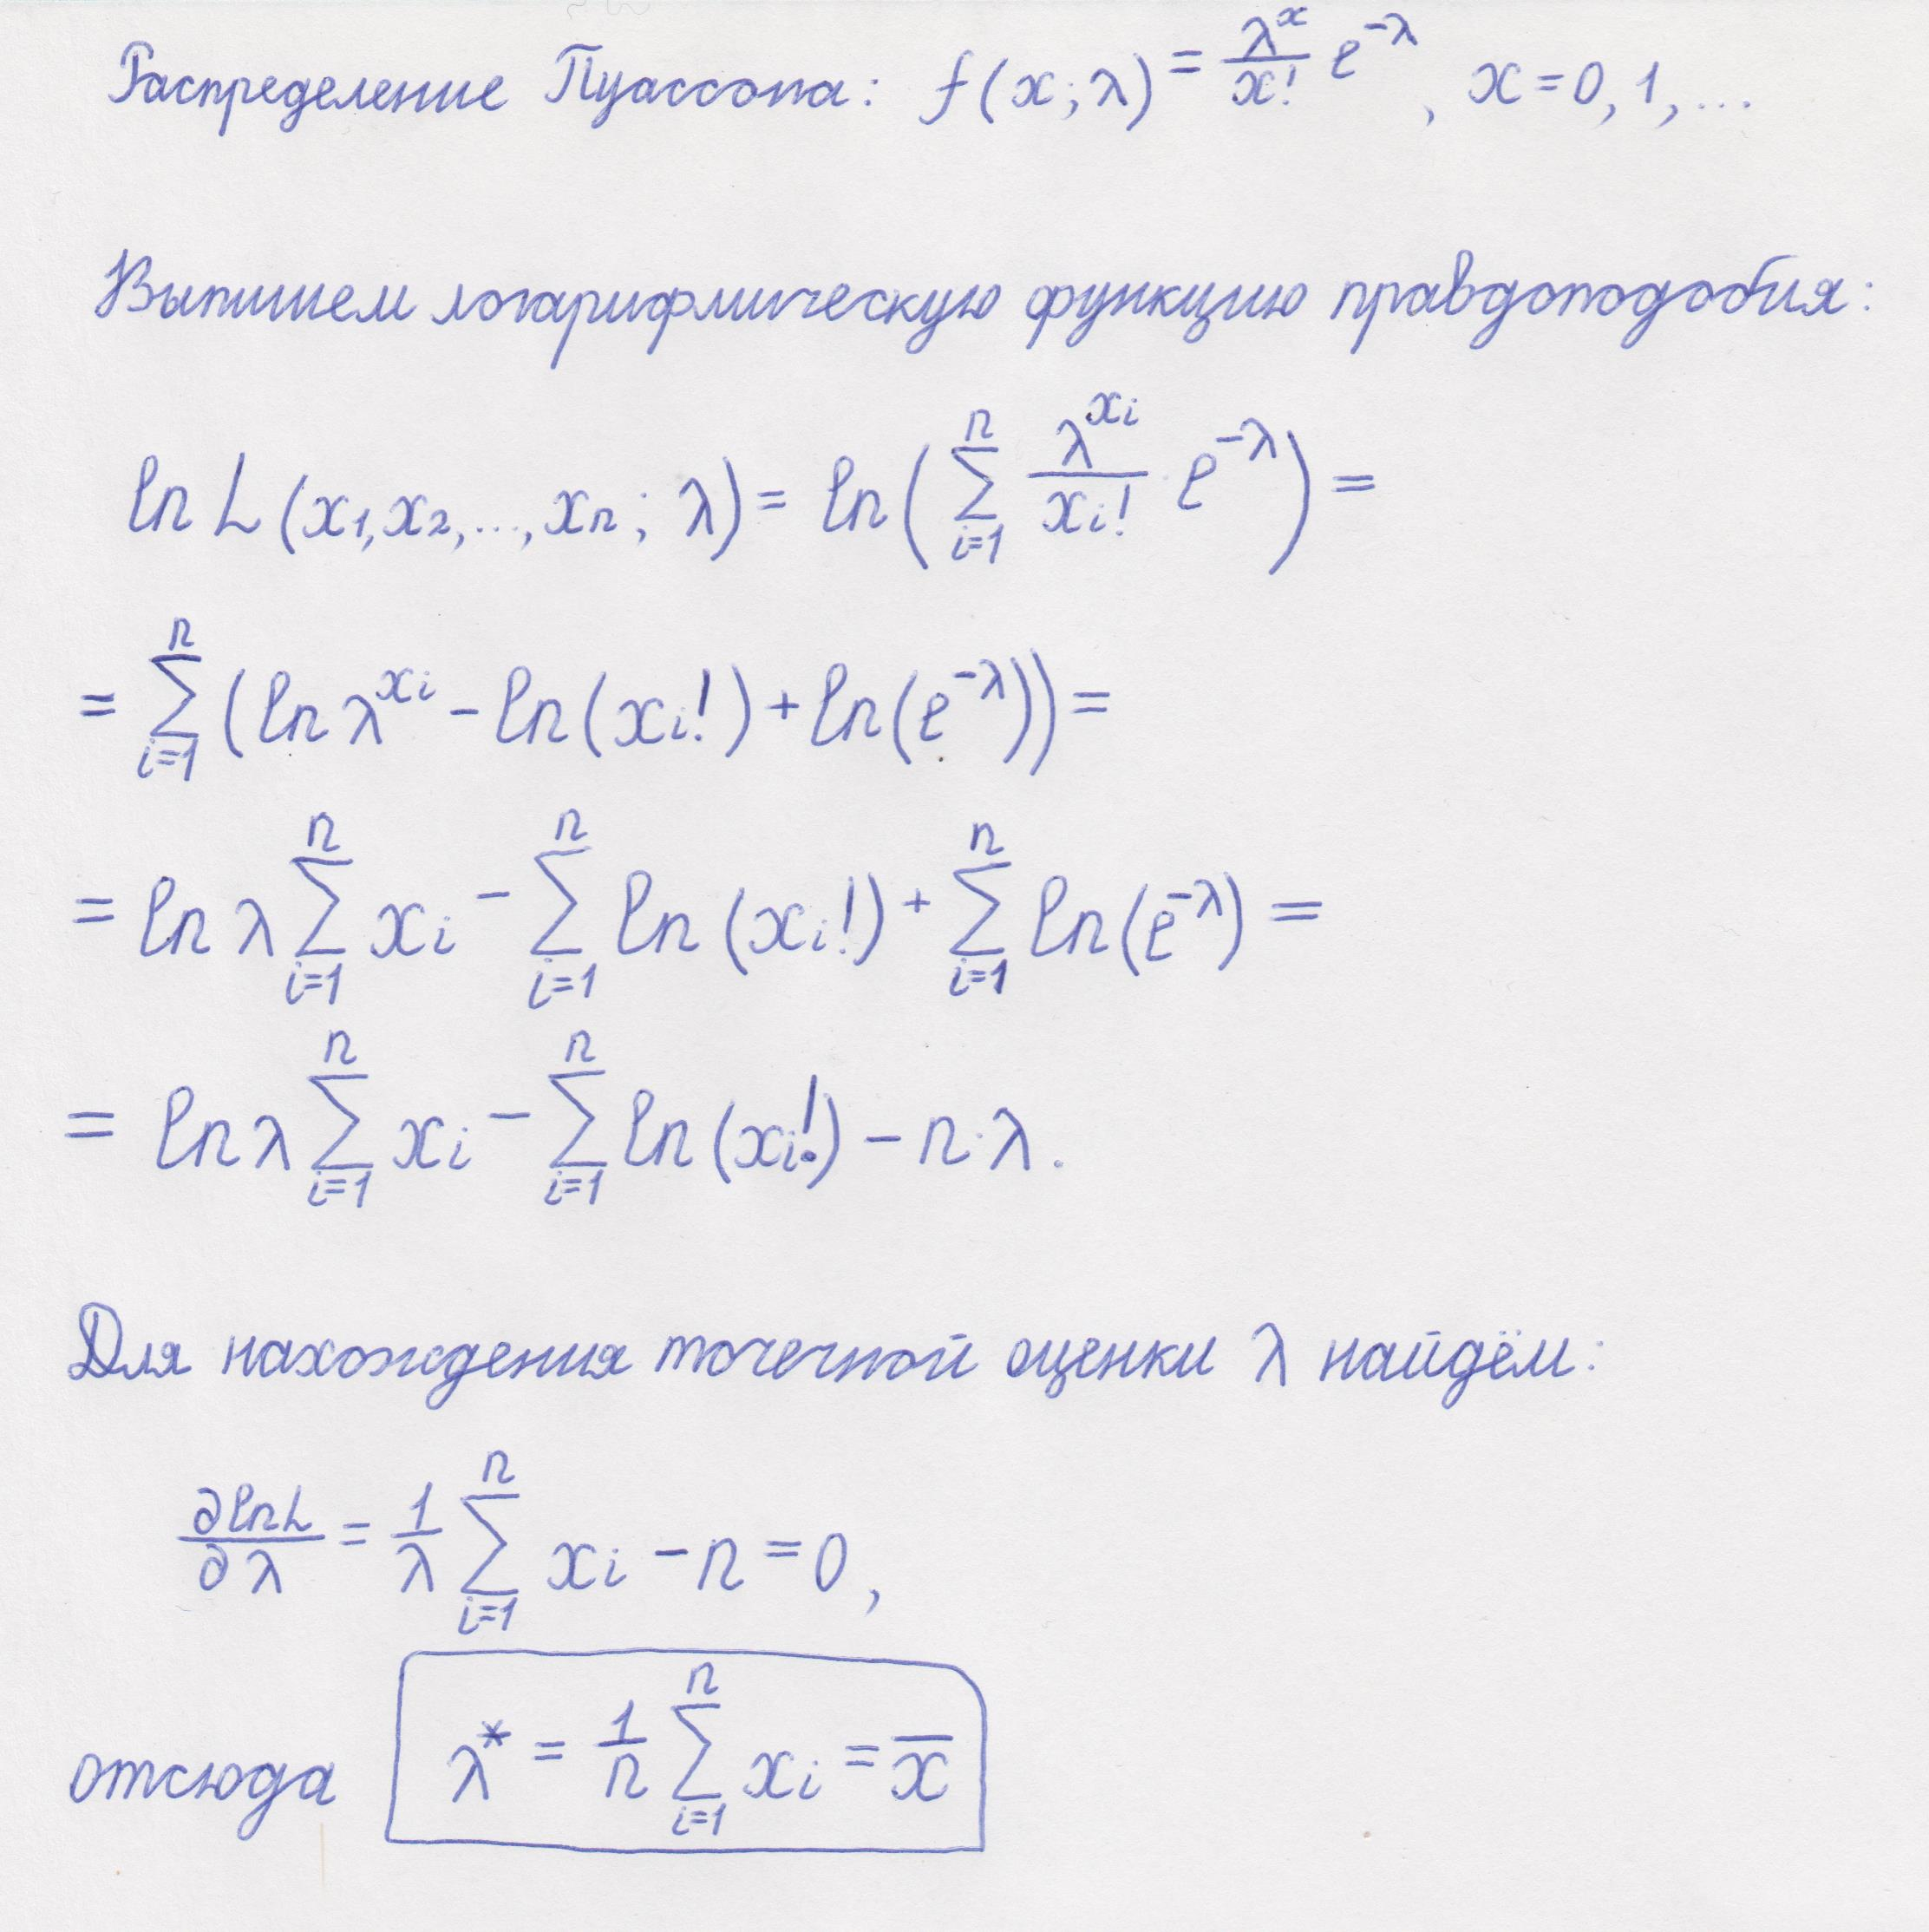 Распределение Пуассона: f(x; λ) = λ^x / x! e^{-λ}, x = 0, 1, ...
Выпишем логарифмическую функцию правдоподобия:
ln L (x₁, x₂, ..., xₙ; λ) = ln( ∑_{i=1}^{n} λ^{x_i} / x_i! · e^{-λ} ) =
= ∑_{i=1}^{n} (ln λ^{x_i} - ln(x_i!) + ln(e^{-λ})) =
= ln λ ∑_{i=1}^{n} x_i - ∑_{i=1}^{n} ln(x_i!) + ∑_{i=1}^{n} ln(e^{-λ}) =
= ln λ ∑_{i=1}^{n} x_i - ∑_{i=1}^{n} ln(x_i!) - n·λ.
Для нахождения точечной оценки λ найдём:
∂ln L / ∂λ = 1/λ ∑_{i=1}^{n} x_i - n = 0,
отсюда λ* = 1/n ∑_{i=1}^{n} x_i = x̄